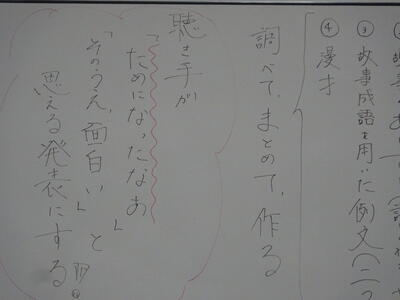 ③故事成語を用いた例文（二つ
④漫才
調べて、まとめて、作る
聴き手が
「ためになったなあ」
「そのうえ、面白い」と
思える発表にする